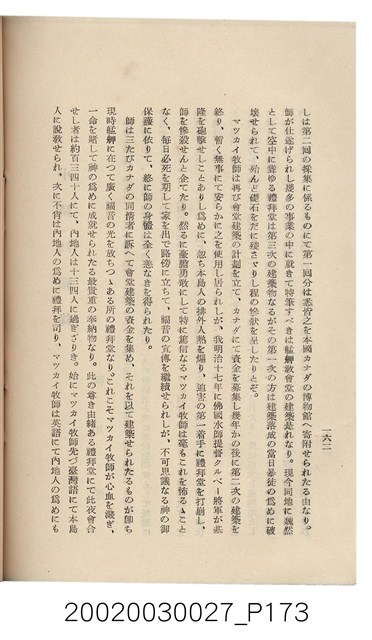 一六二
しは第二回の採集に係るものにて第一回分は悉皆之を本國カナダの博物館へ寄附せられたる由なり。
師が仕遂げられし幾多の事業の中に就きて特筆すべきは艋舺敎會堂の建築是れなり。現今同地に巍然
として空中に聳ゆる禮拜堂は第三次の建築物なるがその第一次の方は建築落成の當日暴徒の爲めに破
壞せられて、殆んど礎石をだに殘さざりし程の慘狀を呈したりとぞ。
マツカイ牧師は再び會堂建築の計劃を立て、カナダにて資金を募集し幾年かの後に第二次の建築を
終り、暫く無事にて安らかに之を使用し居られしが、我明治十七年に佛國水師提督クルベー將軍が基
隆を砲擊せしことありし爲めに、忽ち本島人の排外人熱を煽り、迫害の第一着手に禮拜堂を打崩し、
師を慘殺せんと企てたり。然るに豪膽勇敢にして特に篤信なるマツカイ牧師は毫もこれを怖るゝこと
なく、每日必死を期して家を出で路傍に立ちて、福音の宣傳を繼續せられしが、不可思議なる神の御
保護に依りて、終に師の身體は全く恙なきを得られたり。
師は三たびカナダの同情者に訴へて會堂建築の資金を集め、それを以て建築せられたるものが卽ち
現時艋舺に在つて廣く福音の光を放ちつゝある所の禮拜堂なり。これこそマツカイ牧師が心血を濺ぎ、
一命を賭して神の爲めに成就せられたる最貴重の奉納物なり。此の尊き由緖ある禮拜堂にて此夜會合
せし者は約百三四十人にて、內地人は十三四人に過ぎざりき。始にマツカイ牧師先づ臺灣語にて本島
人に說敎せられ、次に不肖は內地人の爲めに禮拜を司り、マツカイ牧師は英語にて內地人の爲めにも
20020030027_P173